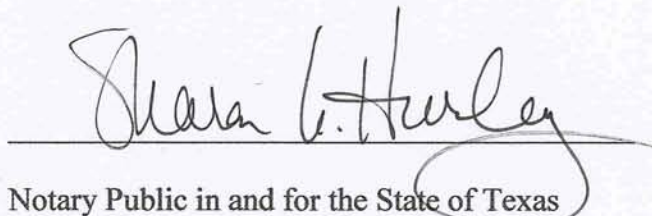 Sharon G. Hurley
Notary Public in and for the State of Texas